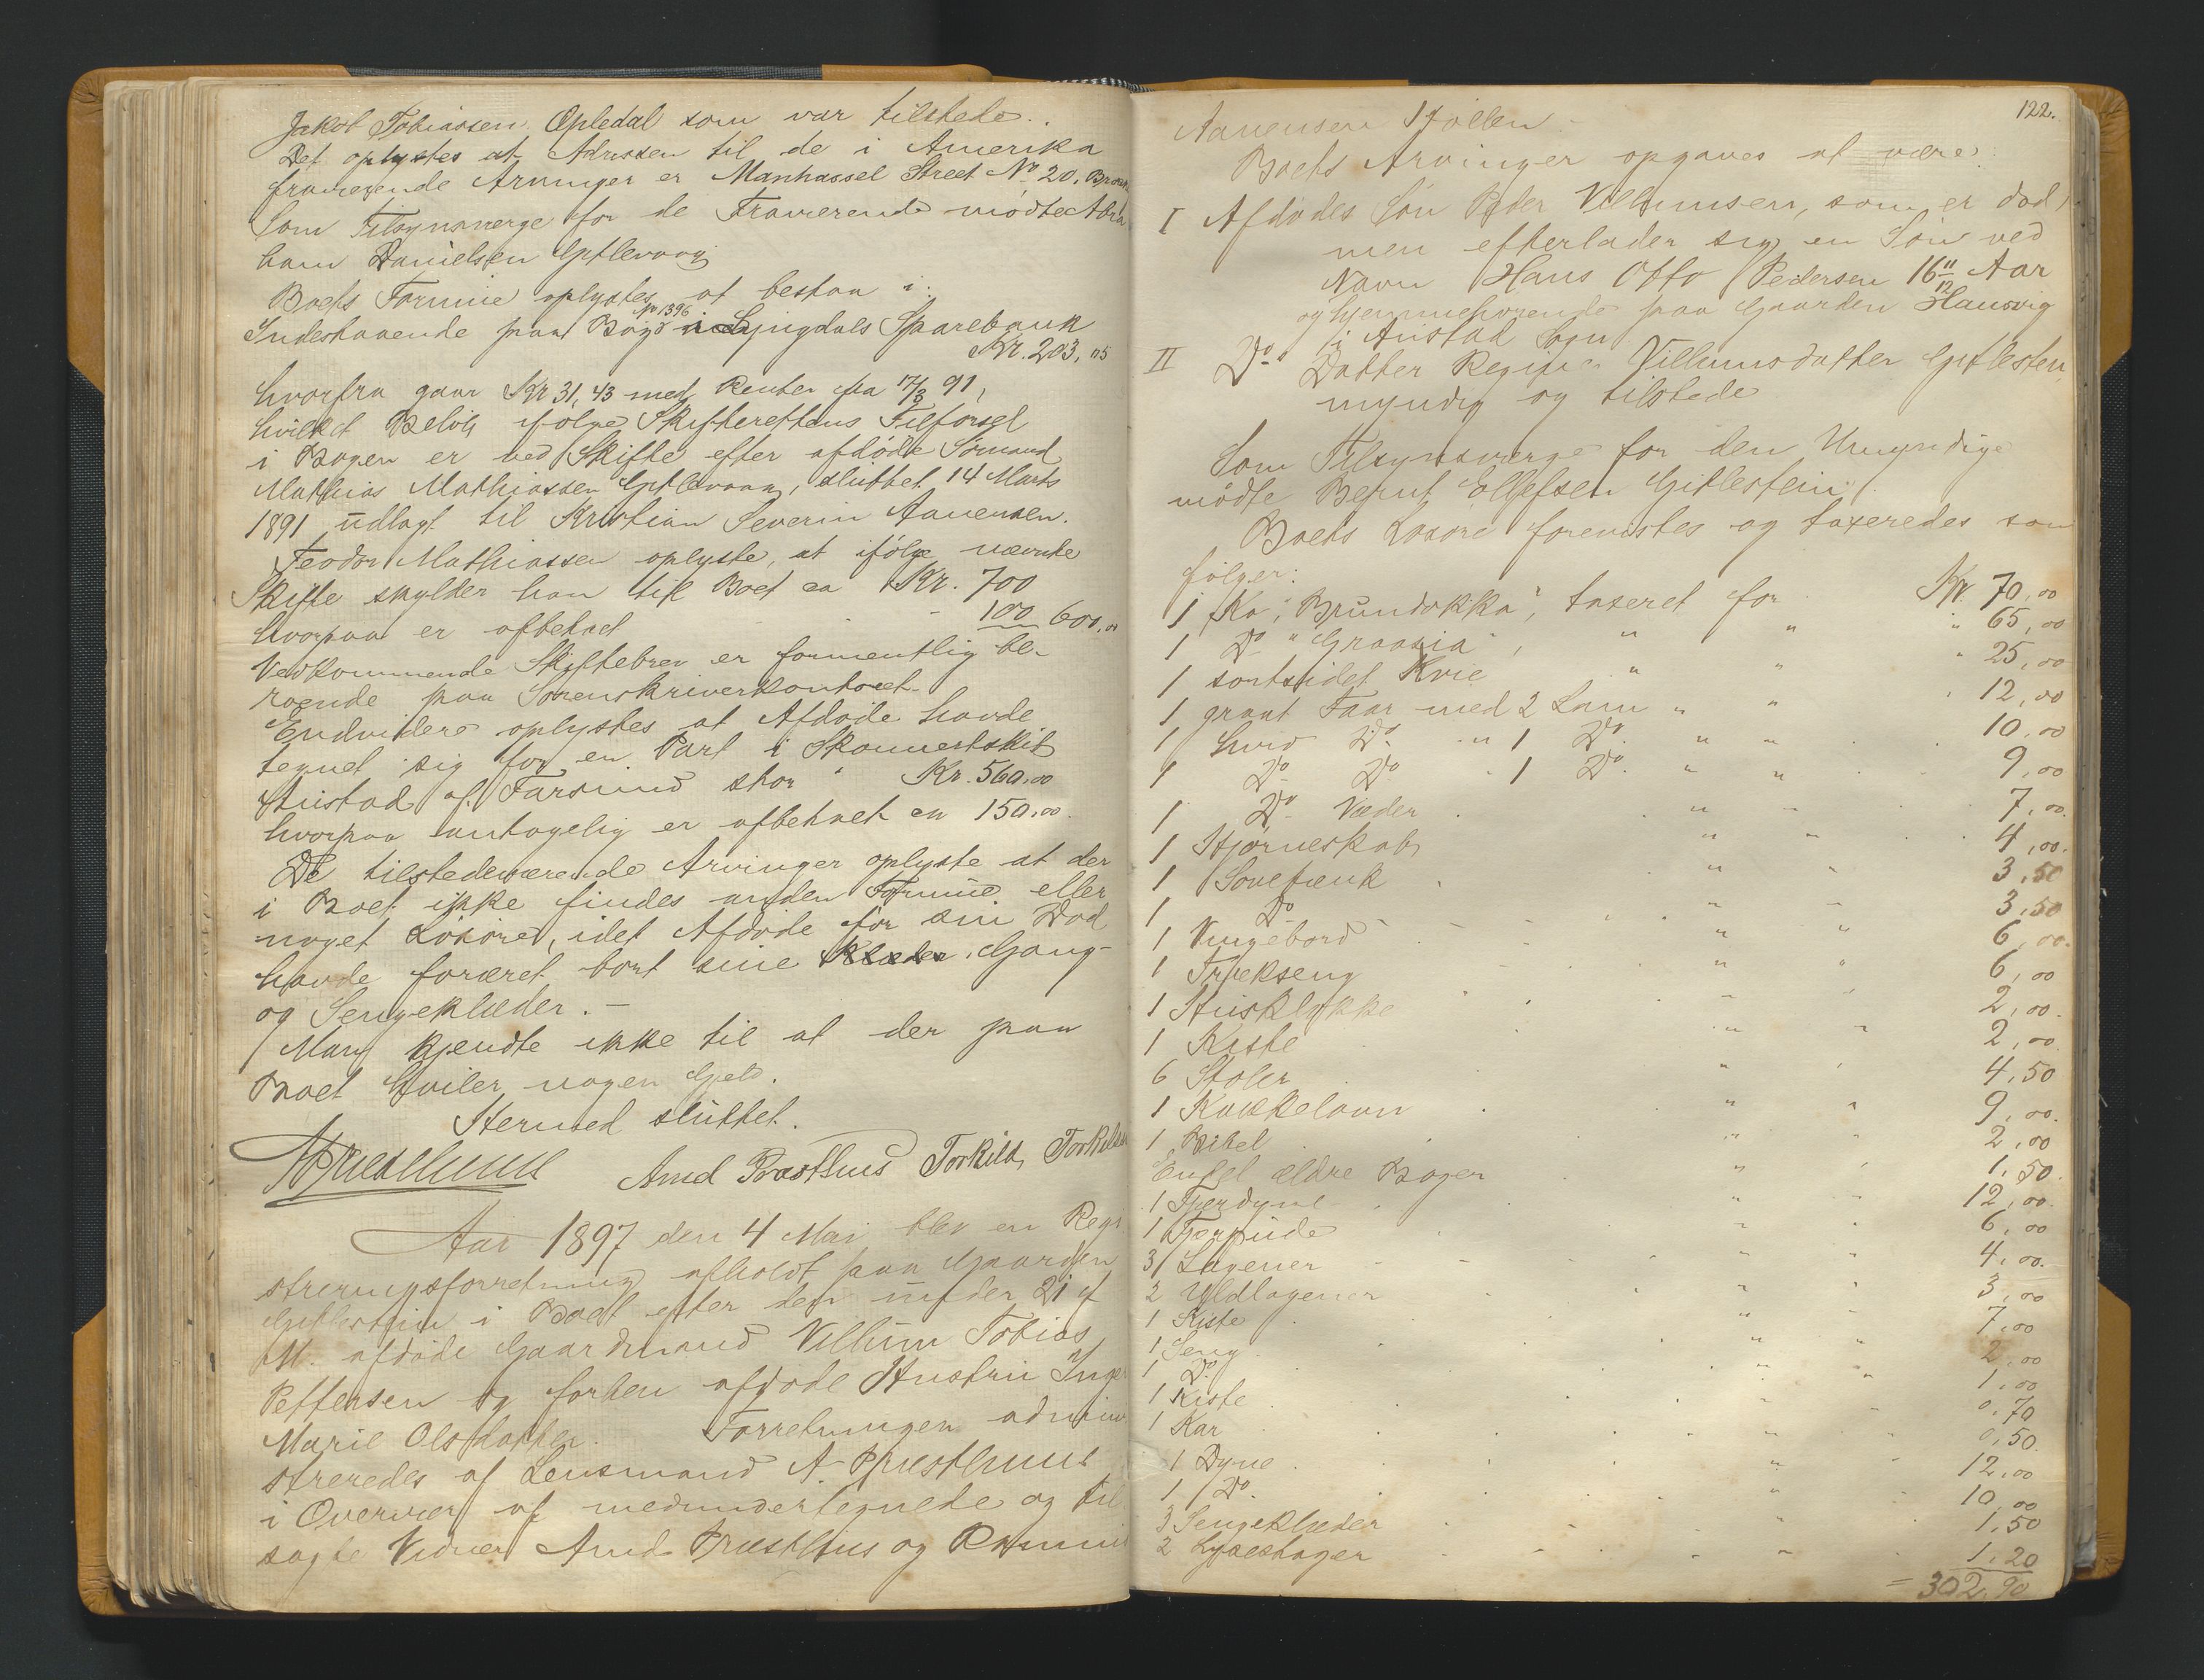 Jakob Tobiassen Opledal som var tilstede.
Det oplystes at Adressen til de i Amerika
fraværende Arvinger er Manhassel Street No 20, Brook
Som Tilsynsverge for de Fraværende mødte Abra
ham Danielsen Gitlevaag
Boets Formue oplystes at bestaa i:
Indestaaende paa Bog No 1396 i Lyngdals Sparebank
Kr. 203,05
hvorfra gaar Kr 31,43 med Renter fra 17/3 91,
hvilket Beløb ifølge Skifterettens Tilførsel
i Bogen er ved Skifte efter afdøde Sømand
Mathias Mathiassen Gitlevaag, sluttet 14 Marts
1891 udlagt til Kristian Severin Aanensen.
Teodor Mathiassen oplyste, at ifølge nævnte
Skifte skylder han til Boet ca Kr. 700
hvorpaa er afbetalt - 100 600,00
Vedkommende Skiftebrev er formentlig be-
roende paa Sorenskriverkontoret.
Endvidere oplystes at Afdøde havde
tegnet sig for en Part i Skonnertskib
Austad af Farsund stor Kr. 560,00
hvorpaa antagelig er afbetalt ca 150,00.
De tilstedeværende Arvinger oplyste at der
i Boet ikke findes anden Formue eller
noget Løsøre, idet Afdøde før sin Død
havde foræret bort sine Klæder, Gang-
og Sengeklæder. -
Man kjendte ikke til at der paa
Boet hviler nogen Gjeld.
Hermed sluttet.
A Præsthuus Arnd Præsthus Torkild Torkilds
Aar 1897 den 4 Mai blev en Regi
streringsforretning afholdt paa Gaarden
Gitlestein i Boet efter den under 21 f
M. afdøde Gaardmand Villum Tobias
Pettersen og forhen afdøde Hustru Inge
Marie Olsdatter. Forretningen admini
streredes af Lensmand A. Præsthuus
i Overvær af medundertegnede og til
sagte Vidner Arnd Præsthus og Rommu
122.
Aanensen Støllen.
Boets Arvinger opgaves at være:
I Afdødes Søn Peder Villumsen, som er død,
men efterlader sig en Søn ved
Navn Hans Otto Pedersen 16 11/12 Aar
og hjemmehørende paa Gaarden Hausvig
i Austad Sogn
II Do Datter Regine Villumsdatter Gitlesten,
myndig og tilstede
Som Tilsynsverge for den Umyndige
mødte Bernt Ellefsen Gitlestein.
Boets Løsøre forevistes og taxeredes som
følger:
1 Ko, "Brundokka", taxeret for Kr. 70,00
1 Do "Graasia", " " " 65,00
1 sortsidet Kvie " " " 25,00
1 graat Faar med 2 Lam " " " 12,00
1 hvid Do " 1 Do " " 10,00
1 Do Do " 1 Do " " 9,00
1 Do Væder " " 7,00.
1 Hjørneskab " " 4,00.
1 Sovebænk " " 3,50
1 Do " " 3,50
1 Vingebord " " 6,00.
1 Trækseng " " 6,00
1 Husklokke " " 2,00.
1 Kiste " " 2,00
6 Stoler " " 4,50
1 Kakkelovn " " 9,00.
1 Bibel " " 2,00
Endel ældre Bøger " " 1,50.
1 Fjerdyne " " 12,00.
1 Fjerpude " " 6,00
3 Lagener " " 4,00.
2 Uldlagener " " 3,00
1 Kiste " " 7,00
1 Seng " " 2,00
1 Do. " " 1,00
1 Kiste " " 0,70
1 Kar " " 0,50.
1 Dyne " " 12,00
1 Do. " " 10,00
3 Sengeklæder " " 1,50
2 Lysestager " " 1,20
= 302,90